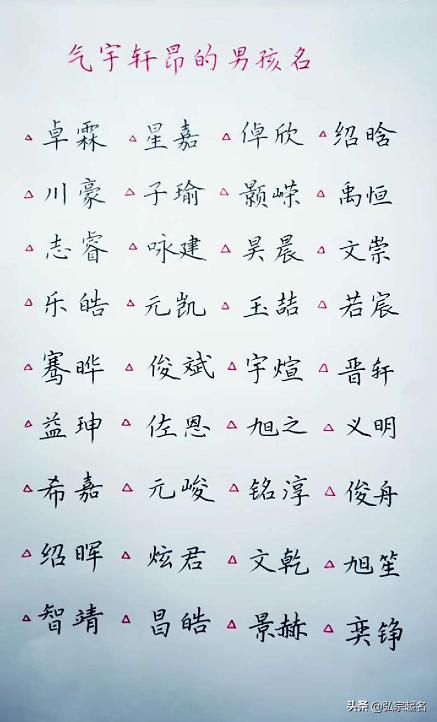 气宇轩昂的男孩名
△卓霖 △星嘉 △倬欣 △绍晗
△川豪 △子瑜 △颢嵘 △禹恒
△志睿 △咏建 △昊晨 △文崇
△乐皓 △元凯 △玉喆 △若宸
△骞晔 △俊斌 △宇煊 △晋轩
△益珅 △佐恩 △旭之 △义明
△希嘉 △元峻 △铭淳 △俊舟
△绍晖 △炫君 △文乾 △旭笙
△智靖 △昌皓 △景赫 △奕铮
头条 @弘宗起名